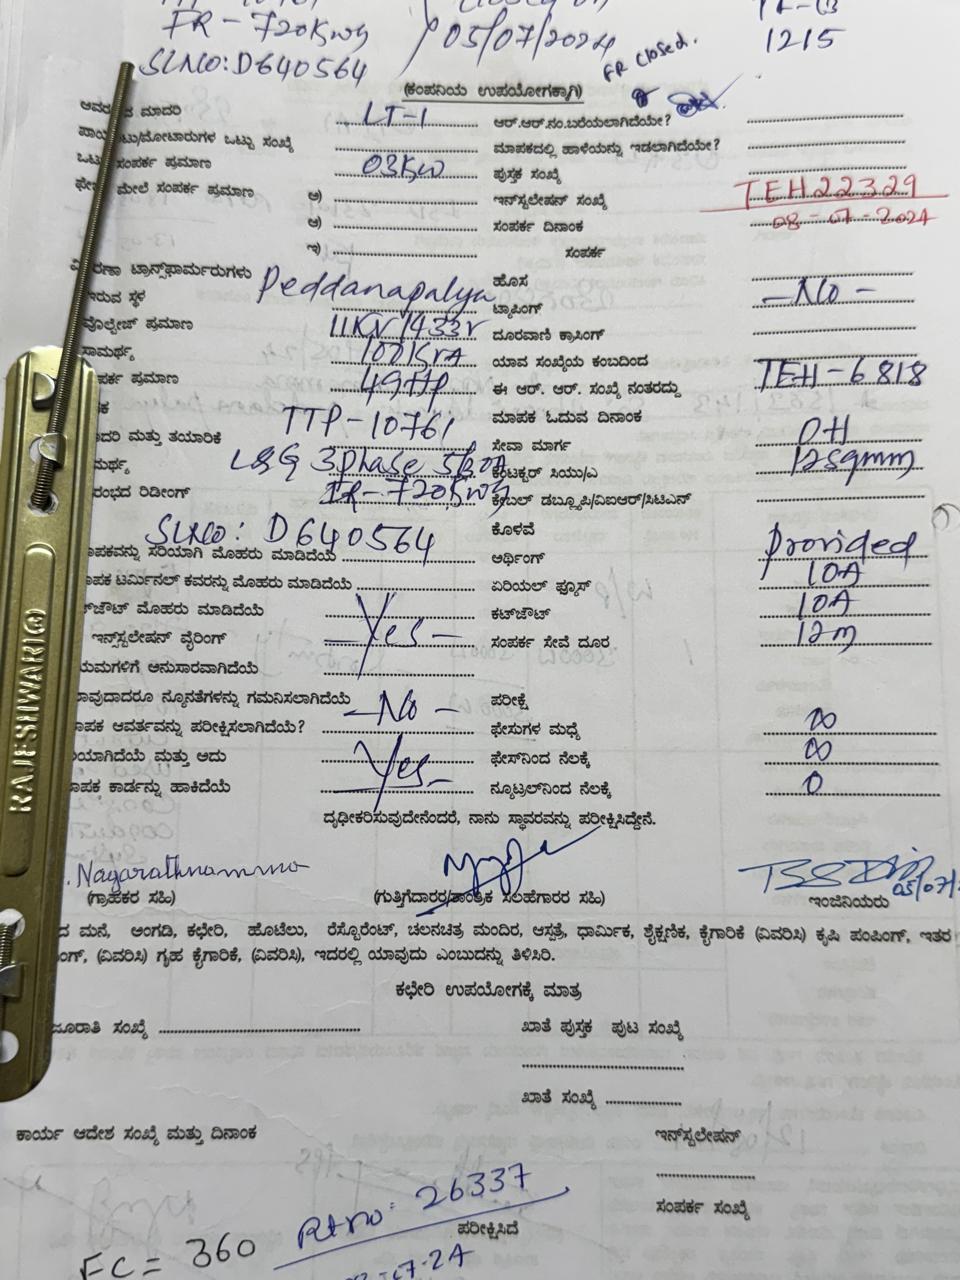 FR - 720Kwg 05/07/2024 1215
SLNO: D640564 FR Closed.
(ಕಂಪನಿಯ ಉಪಯೋಗಕ್ಕಾಗಿ)
ಮಾದರಿ LT-1 ಆರ್.ಆರ್.ನಂ.ಬರೆಯಲಾಗಿದೆಯೇ?
ಮೋಟಾರುಗಳ ಒಟ್ಟು ಸಂಖ್ಯೆ ಮಾಪಕದಲ್ಲಿ ಹಾಳೆಯನ್ನು ಇಡಲಾಗಿದೆಯೇ?
ಒಟ್ಟು ಸಂಪರ್ಕ ಪ್ರಮಾಣ 03KW ಪುಸ್ತಕ ಸಂಖ್ಯೆ
ಮೇಲೆ ಸಂಪರ್ಕ ಪ್ರಮಾಣ ಅ) ಇನ್‌ಸ್ಟಲೇಷನ್ ಸಂಖ್ಯೆ TEH22329
ಆ) ಸಂಪರ್ಕ ದಿನಾಂಕ 08-07-2024
ಇ) ಸಂಪರ್ಕ
ಟ್ರಾನ್ಸ್‌ಫಾರ್ಮರುಗಳು ಹೊಸ
ಇರುವ ಸ್ಥಳ Peddanapalya ಟ್ಯಾಪಿಂಗ್ - No -
ವೋಲ್ಟೇಜ್ ಪ್ರಮಾಣ 11KV/433V ದೂರವಾಣಿ ಕ್ರಾಸಿಂಗ್
ಸಾಮರ್ಥ್ಯ 100KVA ಯಾವ ಸಂಖ್ಯೆಯ ಕಂಬದಿಂದ
ಪ್ರಮಾಣ 49HP ಈ ಆರ್. ಆರ್. ಸಂಖ್ಯೆ ನಂತರದ್ದು TEH-6818
TTP-10761 ಮಾಪಕ ಓದುವ ದಿನಾಂಕ
ಮತ್ತು ತಯಾರಿಕೆ ಸೇವಾ ಮಾರ್ಗ OH
L&G 3phase 5/30A ಕಂಡಕ್ಟರ್ ಸಿಯು/ಎ 12sqmm
ರೀಡಿಂಗ್ IR-720Kwg ಕೇಬಲ್ ಡಬ್ಲ್ಯೂಪಿ/ವಿಐಆರ್/ಸಿಟಿಎನ್
SLNO: D640564 ಕೊಳವೆ
ಸರಿಯಾಗಿ ಮೊಹರು ಮಾಡಿದೆಯೆ ಅರ್ಥಿಂಗ್ provided
ಟರ್ಮಿನಲ್ ಕವರನ್ನು ಮೊಹರು ಮಾಡಿದೆಯೆ ಏರಿಯಲ್ ಫ್ಯೂಸ್ 10A
ಮೊಹರು ಮಾಡಿದೆಯೆ ಕಟ್‌ಔಟ್ 10A
ಇನ್‌ಸ್ಟಲೇಷನ್ ವೈರಿಂಗ್ - Yes - ಸಂಪರ್ಕ ಸೇವೆ ದೂರ 12m
ಅನುಸಾರವಾಗಿದೆಯೆ
ನ್ಯೂನತೆಗಳನ್ನು ಗಮನಿಸಲಾಗಿದೆಯೆ - No - ಪರೀಕ್ಷೆ
ಆವರ್ತವನ್ನು ಪರೀಕ್ಷಿಸಲಾಗಿದೆಯೆ? ಫೇಸುಗಳ ಮಧ್ಯೆ ∞
ಮತ್ತು ಅದು Yes - ಫೇಸ್‌ನಿಂದ ನೆಲಕ್ಕೆ ∞
ಕಾರ್ಡನ್ನು ಹಾಕಿದೆಯೆ ನ್ಯೂಟ್ರಲ್‌ನಿಂದ ನೆಲಕ್ಕೆ 0
ದೃಢೀಕರಿಸುವುದೇನೆಂದರೆ, ನಾನು ಸ್ಥಾವರವನ್ನು ಪರೀಕ್ಷಿಸಿದ್ದೇನೆ.
Nagarathnamma 05/07/
(ಗ್ರಾಹಕರ ಸಹಿ) (ಗುತ್ತಿಗೆದಾರರ/ತಾಂತ್ರಿಕ ಸಲಹೆಗಾರರ ಸಹಿ) ಇಂಜಿನಿಯರು
ಮನೆ, ಅಂಗಡಿ, ಕಛೇರಿ, ಹೊಟೆಲು, ರೆಸ್ಟೊರೆಂಟ್, ಚಲನಚಿತ್ರ ಮಂದಿರ, ಆಸ್ಪತ್ರೆ, ಧಾರ್ಮಿಕ, ಶೈಕ್ಷಣಿಕ, ಕೈಗಾರಿಕೆ (ವಿವರಿಸಿ) ಕೃಷಿ ಪಂಪಿಂಗ್, ಇತರ
(ವಿವರಿಸಿ) ಗೃಹ ಕೈಗಾರಿಕೆ, (ವಿವರಿಸಿ), ಇದರಲ್ಲಿ ಯಾವುದು ಎಂಬುದನ್ನು ತಿಳಿಸಿರಿ.
ಕಛೇರಿ ಉಪಯೋಗಕ್ಕೆ ಮಾತ್ರ
ಸಂಖ್ಯೆ ಖಾತೆ ಪುಸ್ತಕ ಪುಟ ಸಂಖ್ಯೆ
ಖಾತೆ ಸಂಖ್ಯೆ
ಕಾರ್ಯ ಆದೇಶ ಸಂಖ್ಯೆ ಮತ್ತು ದಿನಾಂಕ ಇನ್‌ಸ್ಟಲೇಷನ್
ಸಂಪರ್ಕ ಸಂಖ್ಯೆ
Rt no: 26337
ಪರೀಕ್ಷಿಸಿದೆ
FC = 360
RAJESHWARI